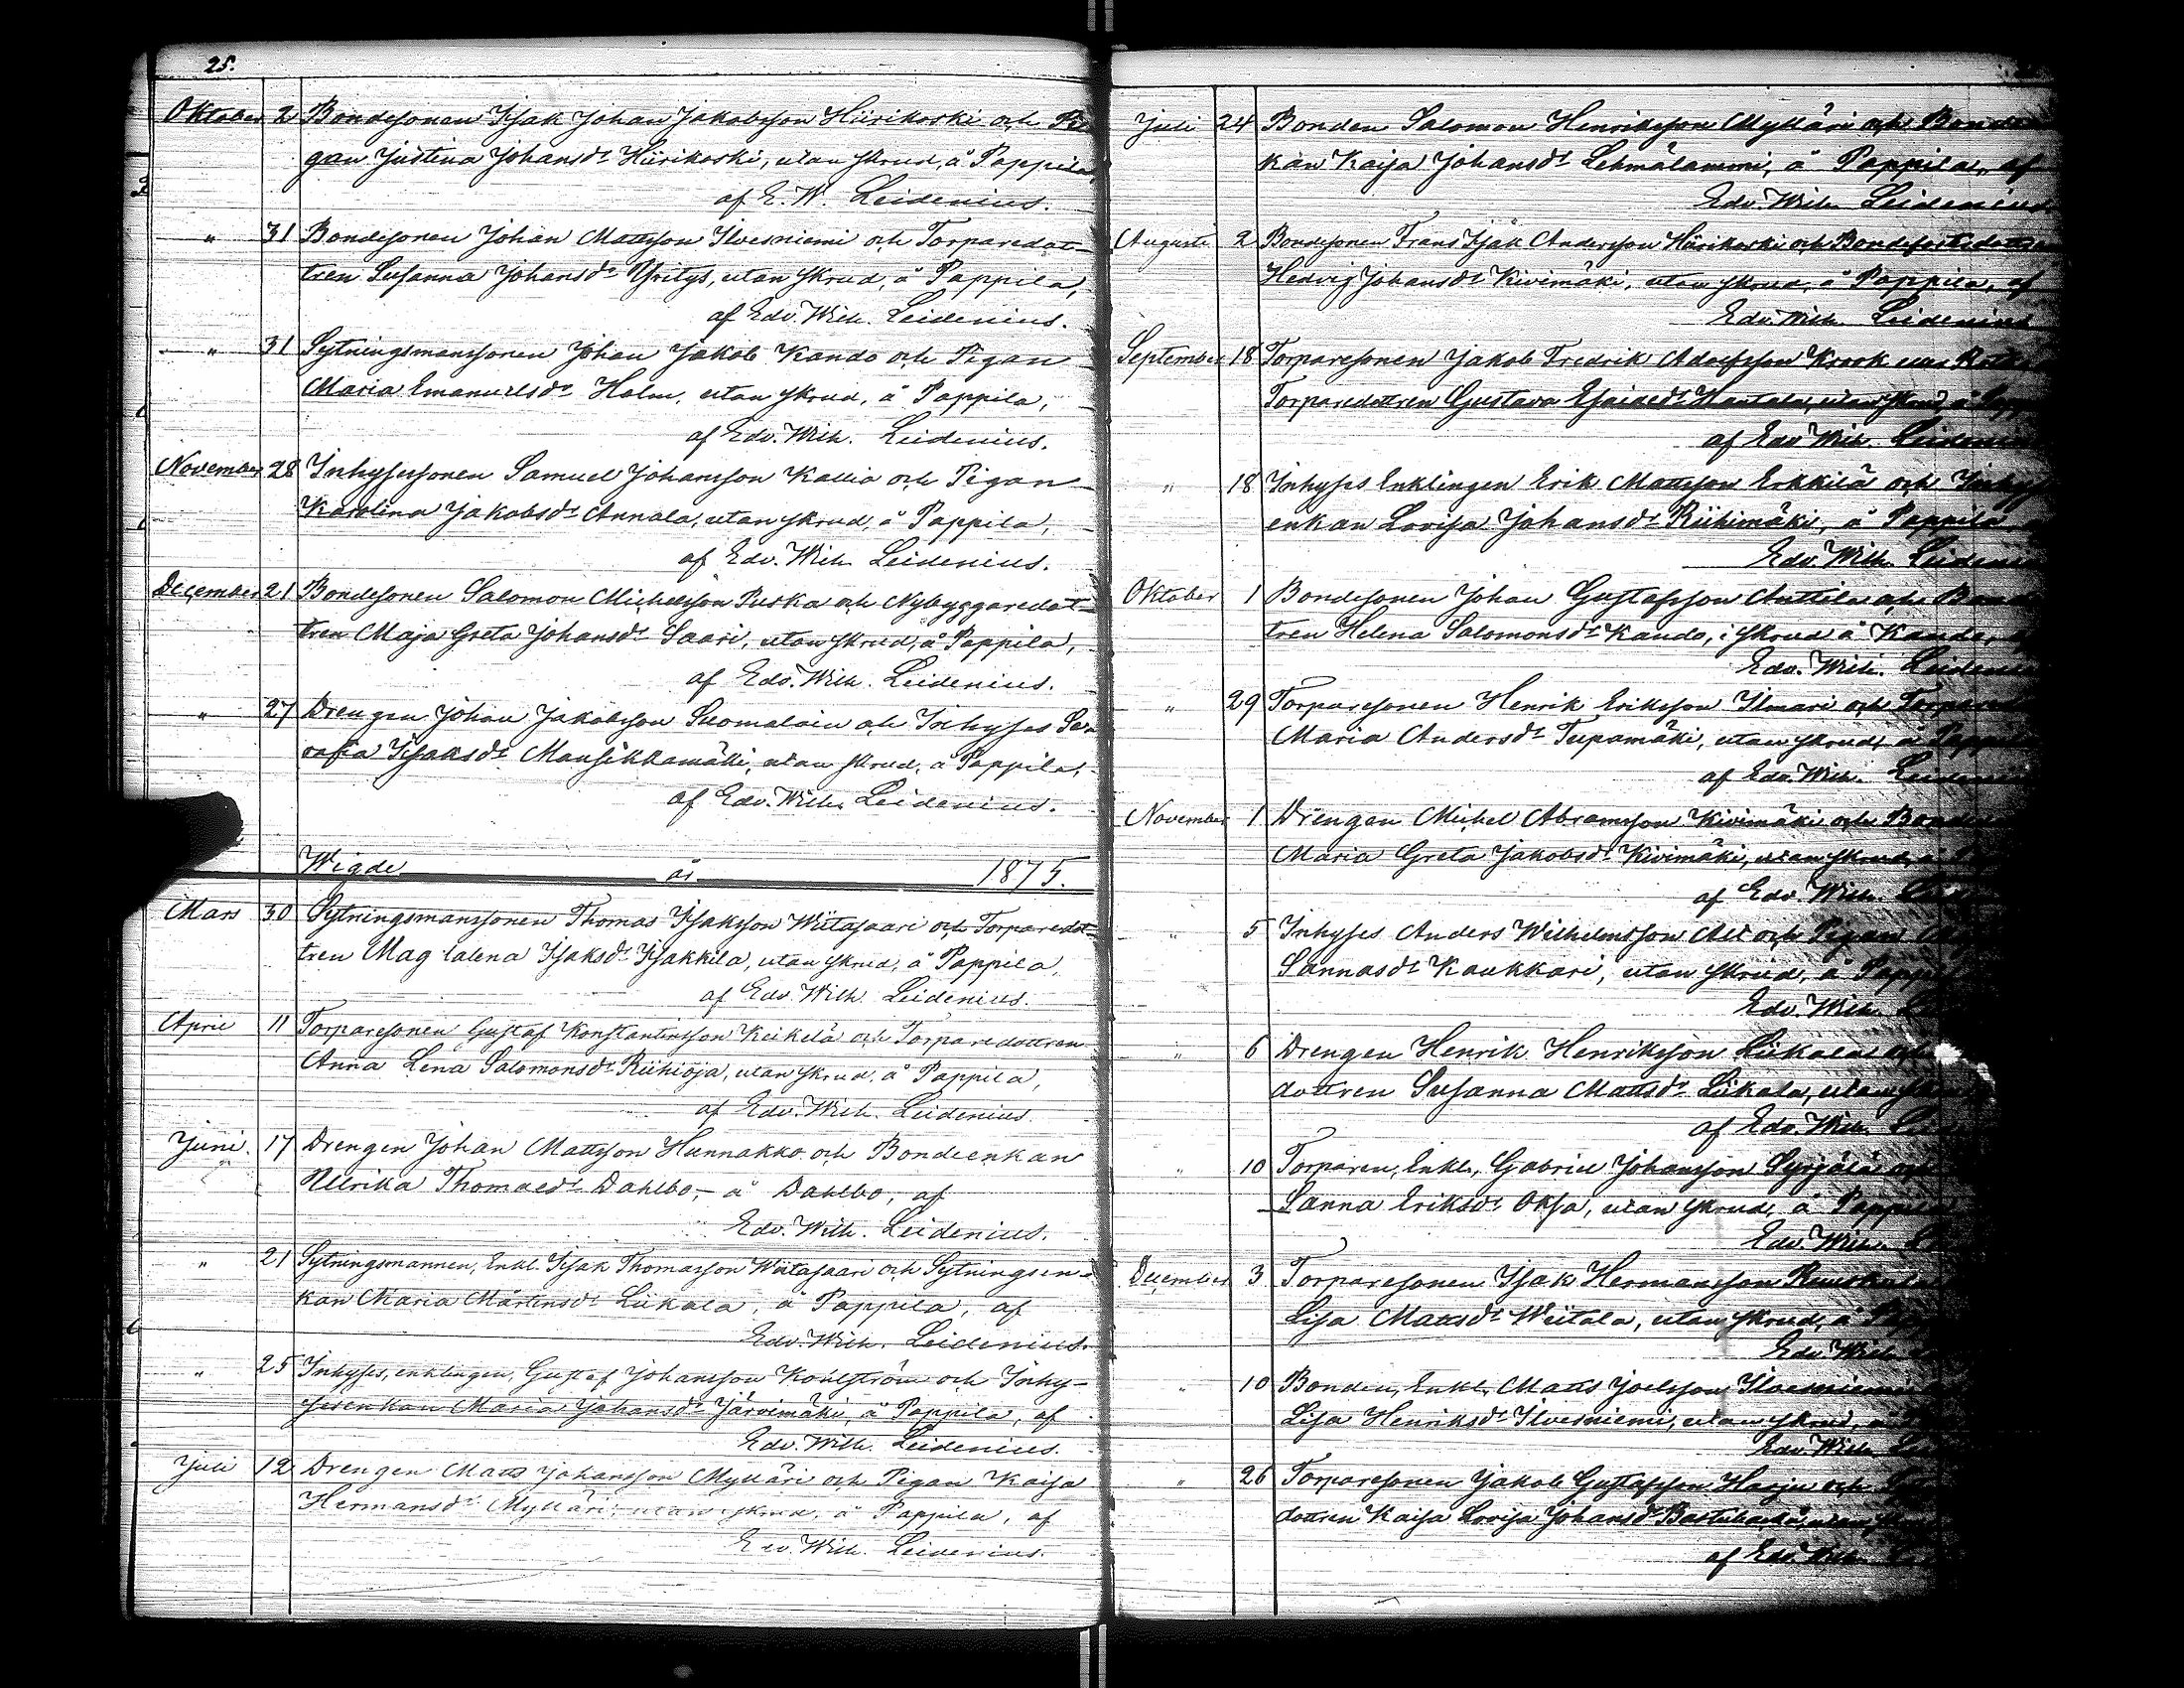 25.
Oktober 2 Bondesonen Isak Johan Jakobsson Hiirikoski och Pi
gan Justina Johansdr Hiirikoski, utan skrud, å Pappila,
af E. W. Leidenius.
" 31 Bondesonen Johan Mattsson Ilvesniemi och Torparedot-
tren Susanna Johansdr Yritys, utan skrud, å Pappila,
af Edv. Wilh. Leidenius.
" 31 Sytningsmanssonen Johan Jakob Kando och Pigan
Maria Emanuelsdr Holm, utan skrud, å Pappila,
af Edv. Wilh. Leidenius.
November 28 Inhysessonen Samuel Johansson Kallio och Pigan
Karolina Jakobsdr Annala, utan skrud, å Pappila,
af Edv. Wilh. Leidenius.
December 21 Bondesonen Salomon Michelsson Puska och Nybyggaredot-
tren Maja Greta Johansdr Saari, utan skrud, å Pappila,
af Edv. Wilh. Leidenius.
" 27 Drengen Johan Jakobsson Suomalain och Inhyses Se-
rafia Isaksdr Mansikkamäki, utan skrud, å Pappila,
af Edv. Wilh. Leidenius.
Wigde år 1875.
Mars 30 Sytningsmanssonen Thomas Isaksson Wiitasaari och Torparedot-
tren Magdalena Isaksdr Isakkila, utan skrud, å Pappila,
af Edv. Wilh. Leidenius.
April 11 Torparesonen Gustaf Konstantinsson Keikelä och Torparedottren
Anna Lena Salomonsdr Riihioja, utan skrud, å Pappila,
af Edv. Wilh. Leidenius.
Juni 17 Drengen Johan Mattsson Hunnakko och Bondeenkan
Ulrika Thomaedr Dahlbo, - å Dahlbo, af
Edv. Wilh. Leidenius.
" 21 Sytningsmannen, Enkl. Isak Thomasson Wiitasaari och Sytningsen-
kan Maria Mårtensdr Liikala, å Pappila, af
Edv. Wilh. Leidenius.
" 25 Inhyses, enklingen, Gustaf Johansson Kohlström och Inhy-
sesenkan Maria Johansdr Järvimäki, å Pappila, af
Edv. Wilh. Leidenius.
Juli 12 Drengen Matts Johansson Mylläri och Pigan Kaisa
Hermansdr Mylläri, utan skrud, å Pappila, af
Edv. Wilh. Leidenius.
Juli 24 Bonden Salomon Henriksson Mylläri och Bonde
kan Kaisa Johansdr Lehmälammi, å Pappila, af
Edv. Wilh. Leidenius
Augusti 2 Bondesonen Frans Isak Andersson Hiirikoski och
Hedvig Johansdr Kivimäki, utan skrud, å Pappila, af
Edv. Wilh. Leidenius
September 18 Torparesonen Jakob Fredrik Adolfsson Krook
Torparedottren Gustava Esaiaedr Hautala, utan skrud, å
af Edv. Wilh. Leidenius
" 18 Inhyses Enklingen Erik Mattsson Erkkilä och
enkan Lovisa Johansdr Riihimäki, å Pappila
Edv. Wilh. Leidenius
Oktober 1 Bondesonen Johan Gustafsson Anttila och
tren Helena Salomonsdr Kando, i skrud å Kando,
Edv. Wilh. Leidenius
" 29 Torparesonen Henrik Eriksson Ilmari och
Maria Andersdr Teepamäki, utan skrud, å
af Edv. Wilh. Leidenius
November 1 Drengen Michel Abramsson Kivimäki och
Maria Greta Jakobsdr Kivimäki, utan skrud, å
af Edv. Wilh.
" 5 Inhyses Anders Wilhelmsson Ali och Pigan
Sannasdr Kaukkari, utan skrud, å
Edv. Wilh.
" 6 Drengen Henrik Henriksson Liikala
dottren Susanna Mattsdr Liikala, utan
af Edv. Wilh.
" 10 Torparen, Enkl., Gabriel Johansson Syrjälä
Sanna Eriksdr Oksa, utan skrud, å
Edv. Wilh.
December 3 Torparesonen Isak Hermansson
Lisa Mattsdr Wiitala, utan skrud, å
Edv. Wilh.
" 10 Bonden, Enkl., Matts Joelsson Ilvesniemi
Lisa Henriksdr Ilvesniemi, utan skrud,
Edv. Wilh.
" 26 Torparesonen Jakob Gustafsson Harju och
dottren Kaisa Lovisa Johansdr
af Edv. Wilh.